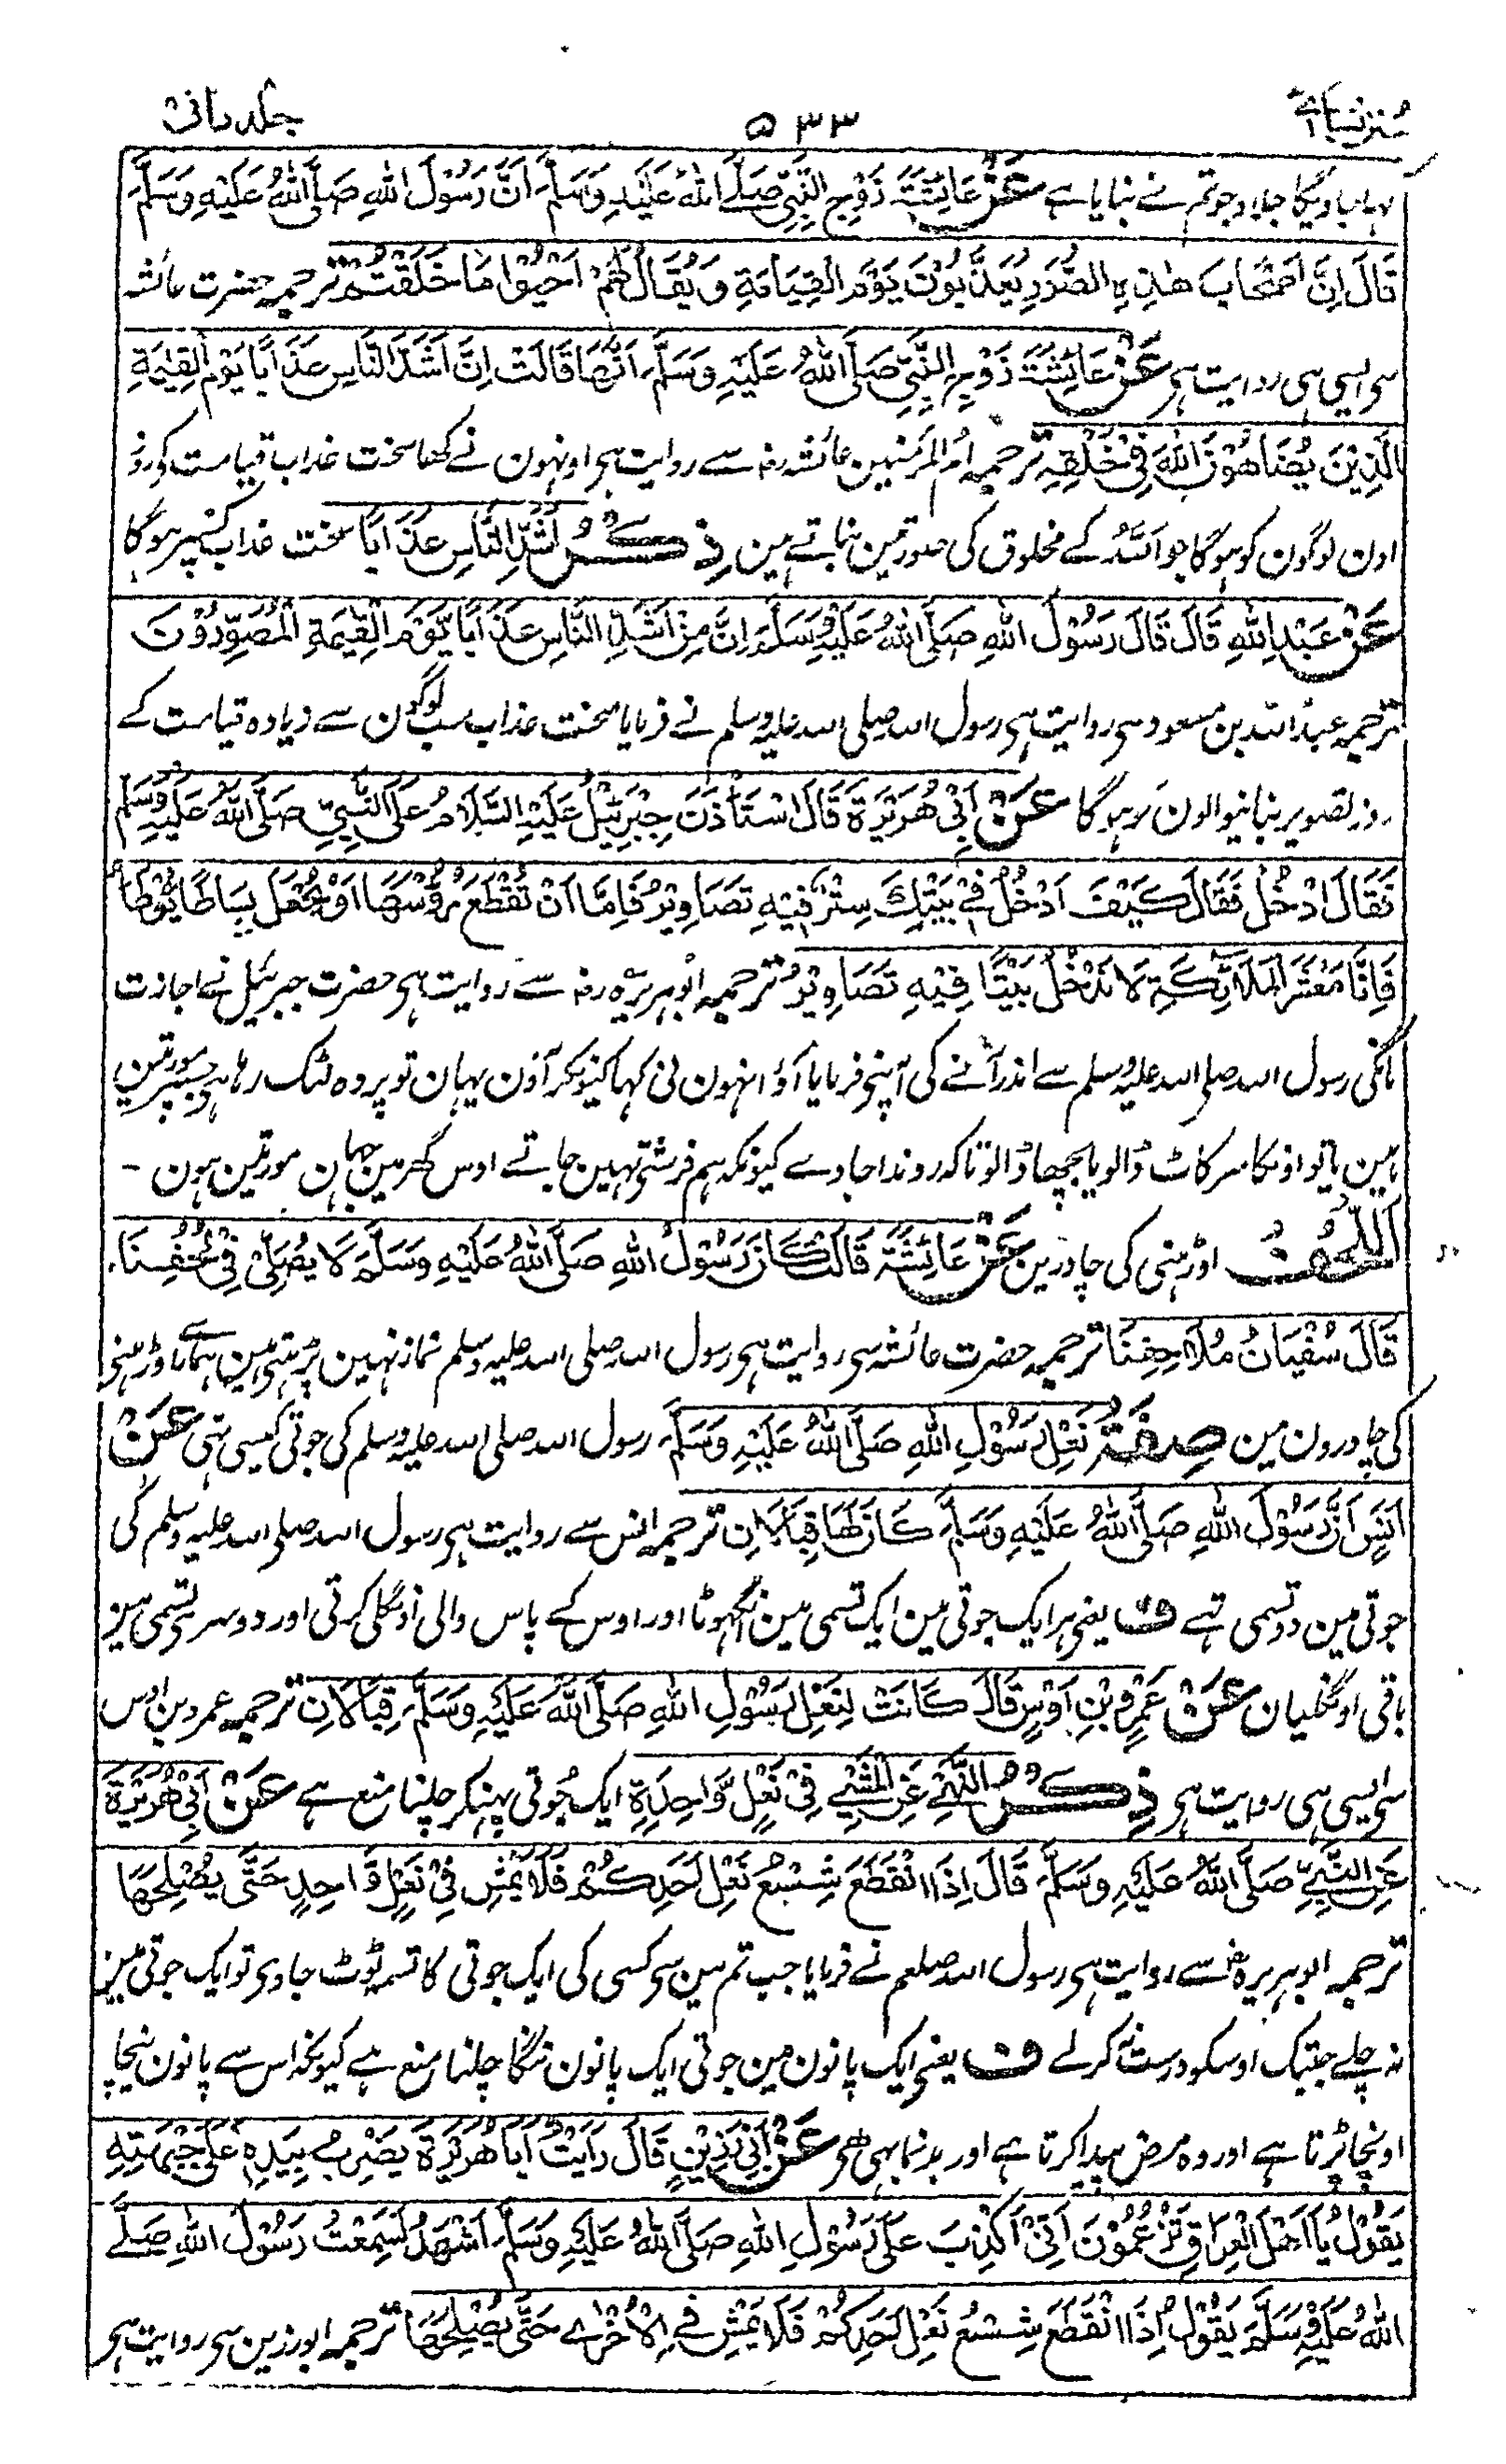 سنن نسائے ۵۳۳ جلد ثانی
جاوے گا جلاؤ جو تم نے بنایا ہے عَنْ عَائِشَةَ زَوْجِ النَّبِيِّ صَلَّى اللهُ عَلَيْهِ وَسَلَّمَ اَنَّ رَسُوْلَ اللهِ صَلَّى اللهُ عَلَيْهِ وَسَلَّمَ
قَالَ اِنَّ اَصْحَابَ هٰذِهِ الصُّوَرِ يُعَذَّبُوْنَ يَوْمَ الْقِيَامَةِ وَيُقَالُ لَهُمْ اَحْيُوْا مَا خَلَقْتُمْ ترجمہ حضرت عائشہ
سی ایسی ہی روایت ہی عَنْ عَائِشَةَ زَوْجِ النَّبِيِّ صَلَّى اللهُ عَلَيْهِ وَسَلَّمَ اَنَّهَا قَالَتْ اِنَّ اَشَدَّ النَّاسِ عَذَابًا يَوْمَ الْقِيٰمَةِ
الَّذِيْنَ يُضَاهُوْنَ اللهَ فِيْ خَلْقِهٖ ترجمہ ام المومنین عائشہ رضہ سے روایت ہی اونہون نے کہا سخت عذاب قیامت کو روز
اون لوگون کو ہوگا جو اللہ کے مخلوق کی صورتین بناتے ہین ذِكْرُ اَشَدِّ النَّاسِ عَذَابًا سخت عذاب کسپر ہوگا
عَنْ عَبْدِ اللهِ قَالَ قَالَ رَسُوْلُ اللهِ صَلَّى اللهُ عَلَيْهِ وَسَلَّمَ اِنَّ مِنْ اَشَدِّ النَّاسِ عَذَابًا يَّوْمَ الْقِيٰمَةِ الْمُصَوِّرُوْنَ
ترجمہ عبداللہ بن مسعود سی روایت ہی رسول اللہ صلی اللہ علیہ وسلم نے فرمایا سخت عذاب سب لوگون سے زیادہ قیامت کے
روز تصویر بنانیوالون کو ہوگا عَنْ اَبِيْ هُرَيْرَةَ قَالَ اسْتَاْذَنَ جِبْرَئِيْلُ عَلَيْهِ السَّلَامُ عَلَى النَّبِيِّ صَلَّى اللهُ عَلَيْهِ وَسَلَّمَ
فَقَالَ ادْخُلْ فَقَالَ كَيْفَ اَدْخُلُ فِيْ بَيْتِكَ سِتْرٌ فِيْهِ تَصَاوِيْرُ فَاِمَّا اَنْ تُقْطَعَ رُؤُسُهَا اَوْ تُجْعَلَ بِسَاطًا يُّوْطَأُ
فَاِنَّا مَعْشَرَ الْمَلَائِكَةِ لَا نَدْخُلُ بَيْتًا فِيْهِ تَصَاوِيْرُ ترجمہ ابو ہریرہ رضہ سے روایت ہی حضرت جبرئیل نے اجازت
مانگی رسول اللہ صلی اللہ علیہ وسلم سے اندر آنے کی آپنی فرمایا آؤ انہون نی کہا کیونکر آؤن یہان تو پردہ لٹک رہا ہی جسپر مورتین
ہین یا تو اونکا سر کاٹ ڈالو یا بچھا ڈالو تاکہ روندا جاوے کیونکہ ہم فرشتی نہین جاتے اوس گھر مین جہان مورتین ہون ـ
اَللُّحُفُ اوڑہنی کی چادرین عَنْ عَائِشَةَ قَالَتْ كَانَ رَسُوْلُ اللهِ صَلَّى اللهُ عَلَيْهِ وَسَلَّمَ لَا يُصَلِّيْ فِيْ لُحُفِنَا
قَالَ سُفْيَانُ مَلَاحِفِنَا ترجمہ حضرت عائشہ سی روایت ہی رسول اللہ صلی اللہ علیہ وسلم نماز نہین پڑہتی تہین ہماری اوڑہنی
کی چادرون مین صِفَةُ نَعْلِ رَسُوْلِ اللهِ صَلَّى اللهُ عَلَيْهِ وَسَلَّمَ رسول اللہ صلی اللہ علیہ وسلم کی جوتی کیسی تہی عَنْ
اَنَسٍ اَنَّ رَسُوْلَ اللهِ صَلَّى اللهُ عَلَيْهِ وَسَلَّمَ كَانَ لَهَا قِبَالَانِ ترجمہ انس سے روایت ہی رسول اللہ صلی اللہ علیہ وسلم کی
جوتی مین دو تسمی تہے ف یعنی ہر ایک جوتی مین ایک تسمی مین انگہوٹا اور اوس کے پاس والی اونگلی کرتی اور دوسری تسمی مین
باقی اونگلیان عَنْ عَمْرِو بْنِ اَوْسٍ قَالَ كَانَتْ لِنَعْلِ رَسُوْلِ اللهِ صَلَّى اللهُ عَلَيْهِ وَسَلَّمَ قِبَالَانِ ترجمہ عمرو بن اوس
سی ایسی ہی روایت ہی ذِكْرُ النَّهْيِ عَنِ الْمَشْيِ فِيْ نَعْلٍ وَّاحِدَةٍ ایک جُوتی پہنکر چلنا منع ہے عَنْ اَبِيْ هُرَيْرَةَ
عَنِ النَّبِيِّ صَلَّى اللهُ عَلَيْهِ وَسَلَّمَ قَالَ اِذَا انْقَطَعَ شِسْعُ نَعْلِ اَحَدِكُمْ فَلَا يَمْشِ فِيْ نَعْلٍ وَّاحِدٍ حَتّٰى يُصْلِحَهَا
ترجمہ ابو ہریرہ رضہ سے روایت ہی رسول اللہ صلعم نے فرمایا جب تم مین سی کسی کی ایک جوتی کا تسمہ ٹوٹ جاوی تو ایک جوتی مین
نہ چلے جبتک اوسکو درست نہ کرلے ف یعنی ایک پانون مین جوتی ایک پانون ننگا چلنا منع ہے کیونکہ اس سے پانون نیچا
اونچا پڑتا ہے اور وہ مرض پیدا کرتا ہے اور بدنما بہی ہی عَنْ اَبِيْ رَزِيْنٍ قَالَ رَاَيْتُ اَبَا هُرَيْرَةَ يَضْرِبُ بِيَدِهٖ عَلٰى جَبْهَتِهٖ
يَقُوْلُ يَا اَهْلَ الْعِرَاقِ تَزْعُمُوْنَ اَنِّيْ اَكْذِبُ عَلٰى رَسُوْلِ اللهِ صَلَّى اللهُ عَلَيْهِ وَسَلَّمَ اَشْهَدُ لَسَمِعْتُ رَسُوْلَ اللهِ صَلَّى
اللهُ عَلَيْهِ وَسَلَّمَ يَقُوْلُ اِذَا انْقَطَعَ شِسْعُ نَعْلِ اَحَدِكُمْ فَلَا يَمْشِ فِي الْاُخْرٰى حَتّٰى يُصْلِحَهَا ترجمہ ابو رزین سی روایت ہی